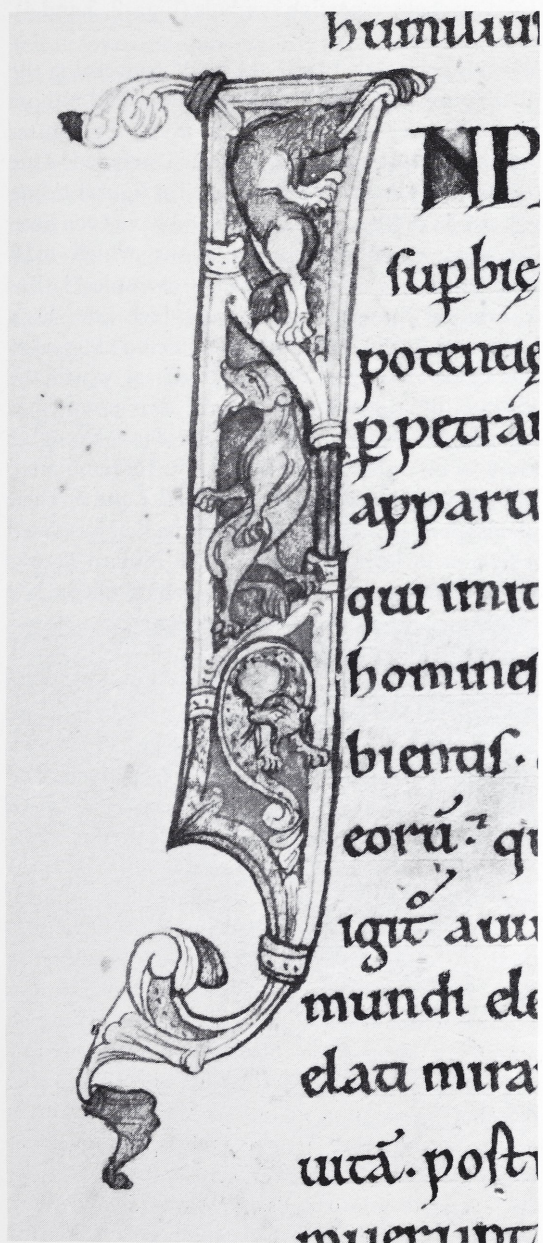 humiliu
INP
sup̄bię
potentię
p̱petra
apparu
qui imit
homines
bientis.
eorū. q
igit auu
mundi ele
elati mira
uitā. post